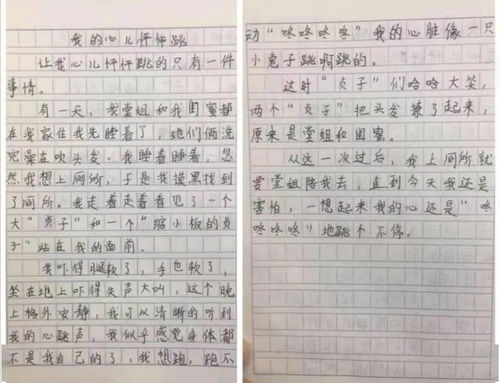 我的心儿怦怦跳
让我心儿怦怦跳的只有一件
事情。
有一天，我堂姐和我闺蜜都
在我家住我先睡着了，她们俩洗
完澡在吹头发。我睡着睡着，忽
然我想上厕所，于是我摸黑找到
了厕所。我走着走着看见了一个
大“贞子”和一个“缩小板的贞
子”站在我的面前。
我吓得腿软了，手也软了，
坐在地上吓得失声大叫，这个晚
上格外安静，我可以清晰的听到
我的心跳声，我似乎感觉身体都
不是我自己的了，我想跑，跑不
动“咚咚咚咚”我的心脏像一只
小兔子跳啊跳的。
这时“贞子”们哈哈大笑，
两个“贞子”把头发撩了起来，
原来是堂姐和闺蜜。
从这一次过后，我上厕所就
要堂姐陪我去，直到今天我还是
害怕，一想起来我的心还是“咚
咚咚咚”地跳个不停。